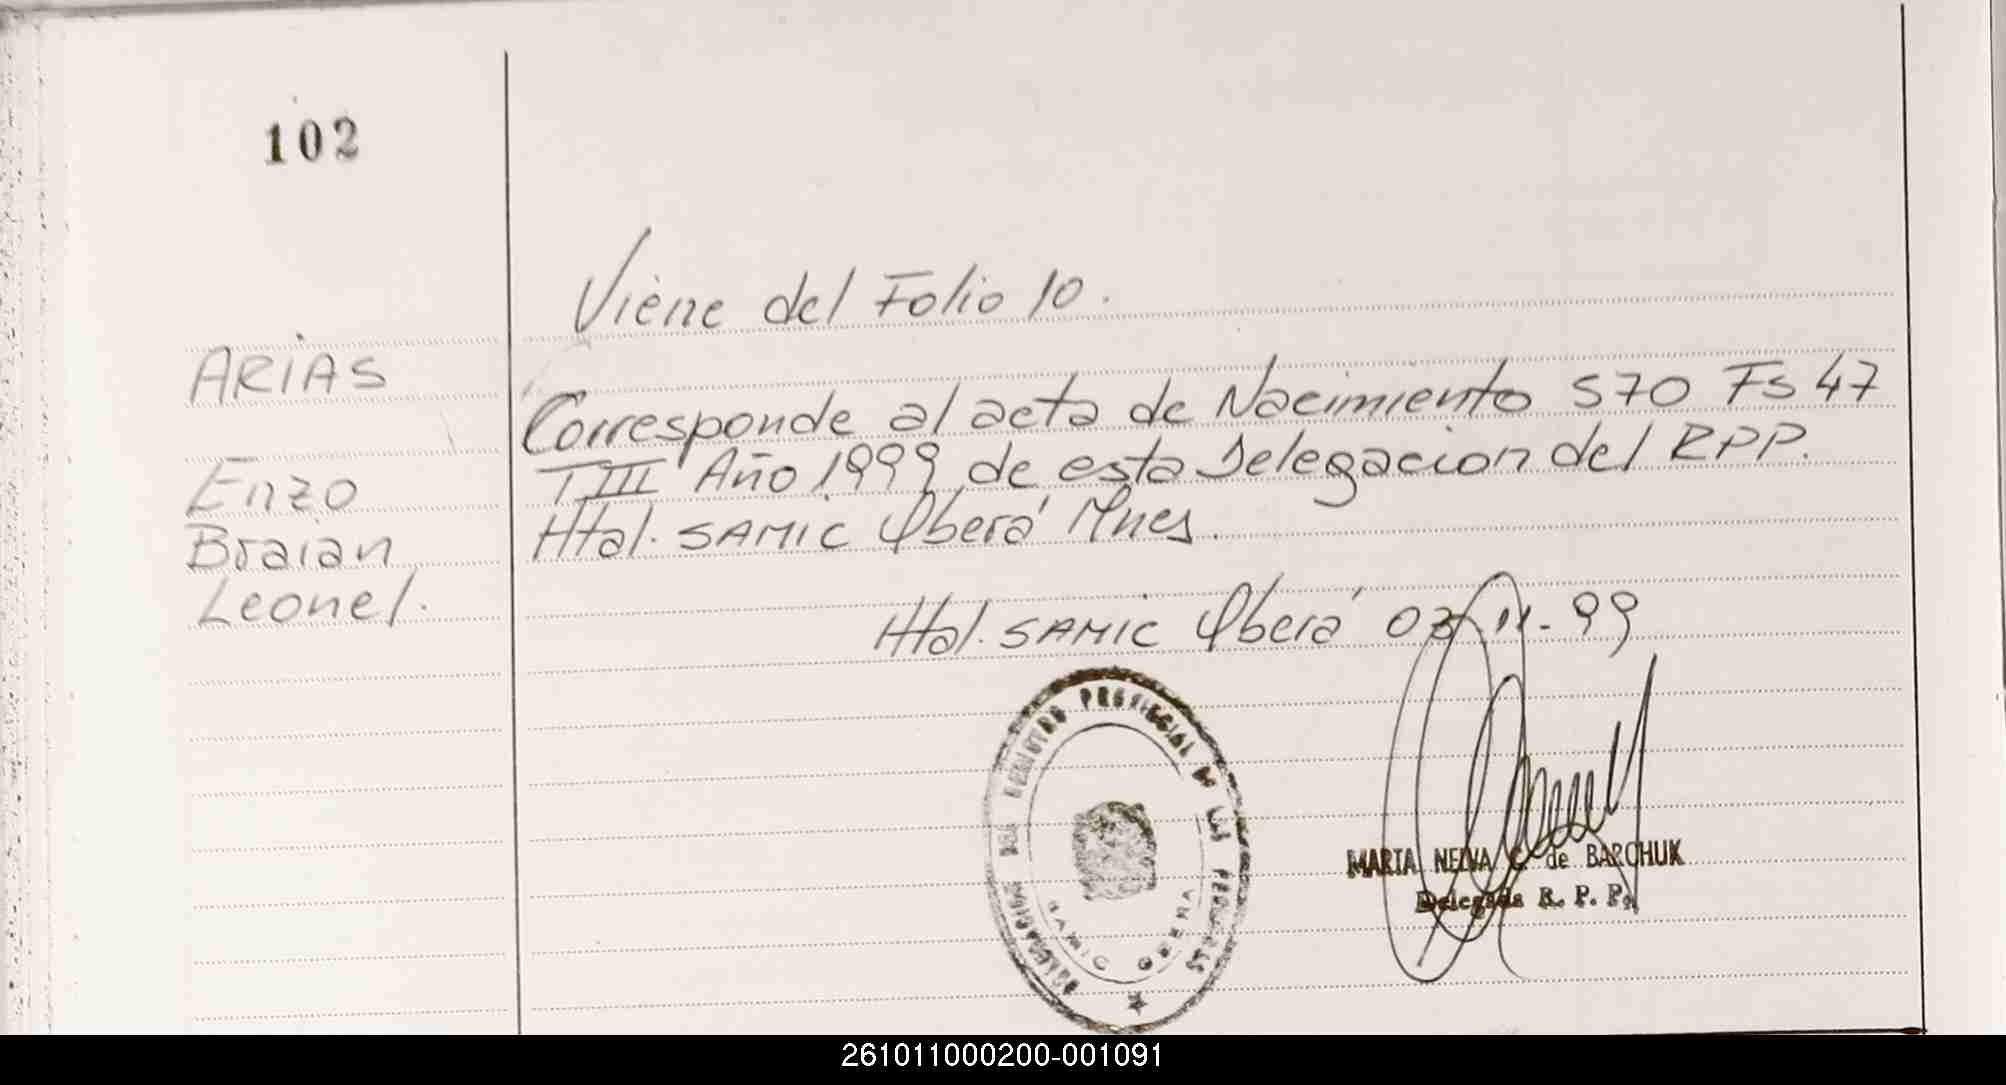 102
Viene del Folio 10.
ARIAS
Corresponde al acta de Nacimiento 570 Fs 47
Enzo
TIII Año 1999 de esta Delegacion del RPP.
Braian
Htal. SAMIC Oberá Mnes.
Leonel.
Htal. SAMIC Oberá 03-11-99
DELEGACION DEL REGISTRO PROVINCIAL DE LAS PERSONAS
SAMIC OBERA
MARIA NELVA C. de BARCHUK
Delegada R. P. P.
261011000200-001091